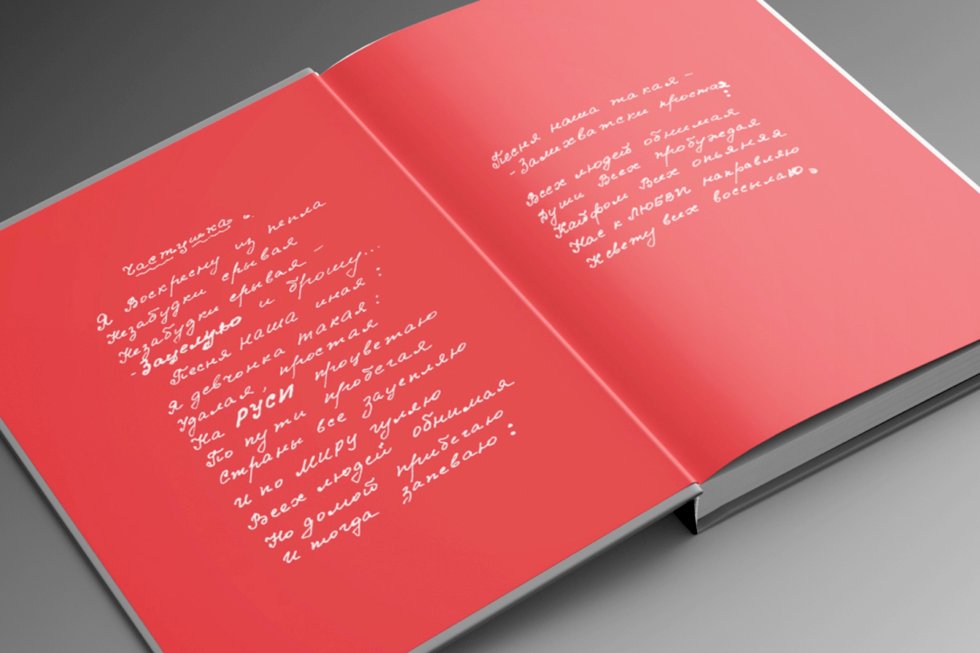 Частушка.
Я Воскресну из пепла
Незабудки срывая
Незабудки срывая –
-Зацелую и брошу...
Песня наша иная :
Я девчонка такая :
Удалая, простая
На РУСИ процветаю
По пути пробегая
Страны все зацепляю
И по МИРУ гуляю
Всех людей обнимая
Но домой прибегаю
И тогда запеваю :
Песня наша такая –
-Залихватски простая :
Всех людей обнимая
Души Всех пробуждая
Кайфом Всех опьяняя
Нас к ЛЮБВИ направляю
К свету всех воссылаю.